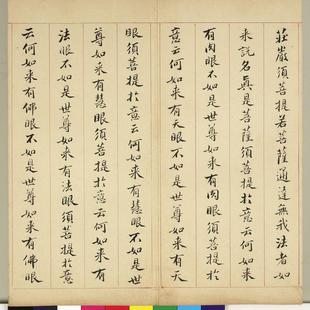 莊嚴須菩提若菩薩通達無我法者如
來説名真是菩薩須菩提於意云何如来
有肉眼不如是世尊如来有肉眼須菩提於
意云何如来有天眼不如是世尊如来有天
眼須菩提於意云何如来有慧眼不如是世
尊如来有慧眼須菩提於意云何如来有
法眼不如是世尊如来有法眼須菩提於意
云何如来有佛眼不如是世尊如来有佛眼